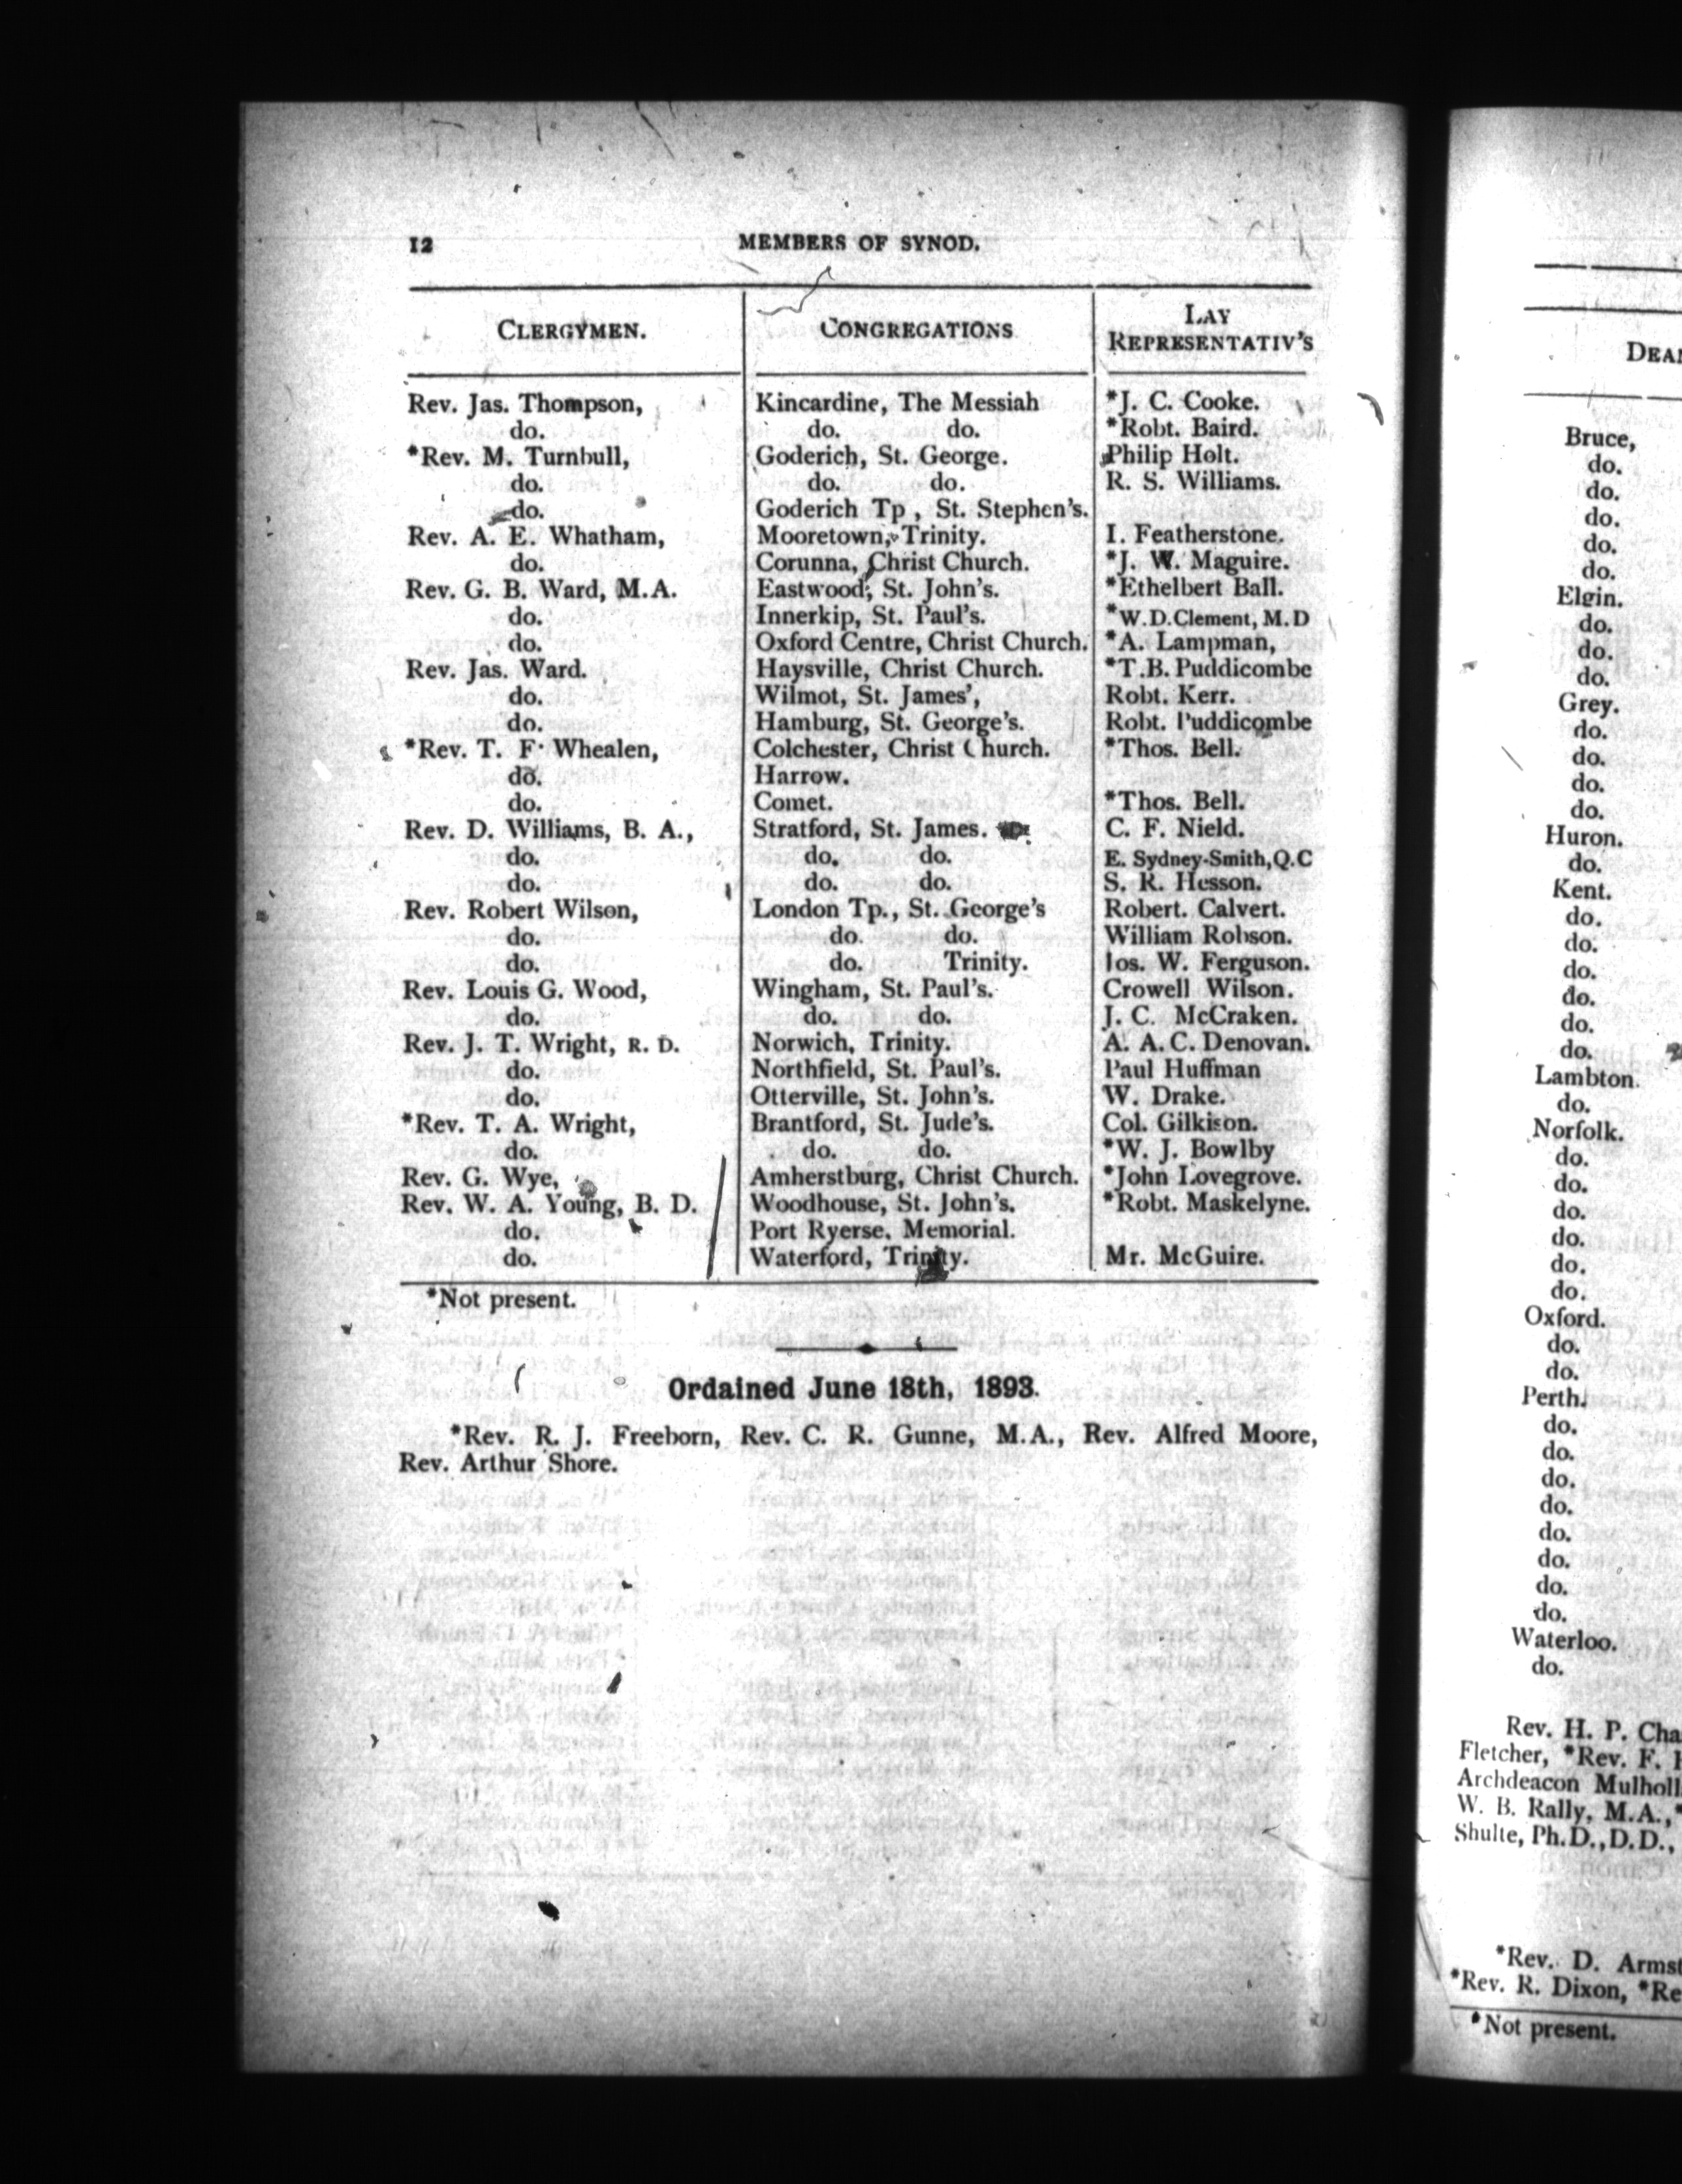 12 MEMBERS OF SYNOD.
CLERGYMEN. CONGREGATIONS LAY REPRESENTATIV'S
Rev. Jas. Thompson, Kincardine, The Messiah *J. C. Cooke.
do. do. do. *Robt. Baird.
*Rev. M. Turnbull, Goderich, St. George. Philip Holt.
do. do. do. R. S. Williams.
do. Goderich Tp , St. Stephen's.
Rev. A. E. Whatham, Mooretown, Trinity. I. Featherstone.
do. Corunna, Christ Church. *J. W. Maguire.
Rev. G. B. Ward, M.A. Eastwood, St. John's. *Ethelbert Ball.
do. Innerkip, St. Paul's. *W.D.Clement, M.D
do. Oxford Centre, Christ Church. *A. Lampman,
Rev. Jas. Ward. Haysville, Christ Church. *T.B. Puddicombe
do. Wilmot, St. James', Robt. Kerr.
do. Hamburg, St. George's. Robt. Puddicombe
*Rev. T. F. Whealen, Colchester, Christ Church. *Thos. Bell.
do. Harrow.
do. Comet. *Thos. Bell.
Rev. D. Williams, B. A., Stratford, St. James. C. F. Nield.
do. do. do. E. Sydney-Smith,Q.C
do. do. do. S. R. Hesson.
Rev. Robert Wilson, London Tp., St. George's Robert. Calvert.
do. do. do. William Robson.
do. do. Trinity. Jos. W. Ferguson.
Rev. Louis G. Wood, Wingham, St. Paul's. Crowell Wilson.
do. do. do. J. C. McCraken.
Rev. J. T. Wright, R. D. Norwich, Trinity. A. A. C. Denovan.
do. Northfield, St. Paul's. Paul Huffman
do. Otterville, St. John's. W. Drake.
*Rev. T. A. Wright, Brantford, St. Jude's. Col. Gilkison.
do. do. do. *W. J. Bowlby
Rev. G. Wye, Amherstburg, Christ Church. *John Lovegrove.
Rev. W. A. Young, B. D. Woodhouse, St. John's. *Robt. Maskelyne.
do. Port Ryerse, Memorial.
do. Waterford, Trinity. Mr. McGuire.
*Not present.
Ordained June 18th, 1893.
*Rev. R. J. Freeborn, Rev. C. R. Gunne, M.A., Rev. Alfred Moore,
Rev. Arthur Shore.
Bruce,
do.
do.
do.
do.
do.
Elgin.
do.
do.
do.
Grey.
do.
do.
do.
do.
Huron.
do.
Kent.
do.
do.
do.
do.
do.
do.
Lambton.
do.
Norfolk.
do.
do.
do.
do.
do.
do.
Oxford.
do.
do.
Perth.
do.
do.
do.
do.
do.
do.
do.
do.
Waterloo.
do.
Rev. H. P.
Fletcher, *Rev. F.
Archdeacon
W. B. Rally, M.A.,
Shulte, Ph.D.,D.D.,
*Rev. D.
*Rev. R. Dixon,
*Not present.